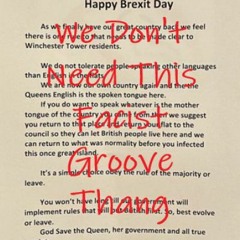 Happy Brexit Day
As we finally have our great country back we feel
there is one rule that needs to be made clear to
Winchester Tower residents.
We do not tolerate people speaking other languages
than English in the flats.
We are now our own country again and the
Queens English is the spoken tongue here.
If you do want to speak whatever is the mother
tongue of the country you came from then we suggest
you return to that place and return your flat to the
council so they can let British people live here and we
can return to what was normality before you infected
this once great island.
It's a simple choice obey the rule of the majority or
leave.
You won't have long till our government will
implement rules that will put British first. So, best evolve
or leave.
God Save the Queen, her government and all true
We Don't
Need This
Facist
Groove
Thang